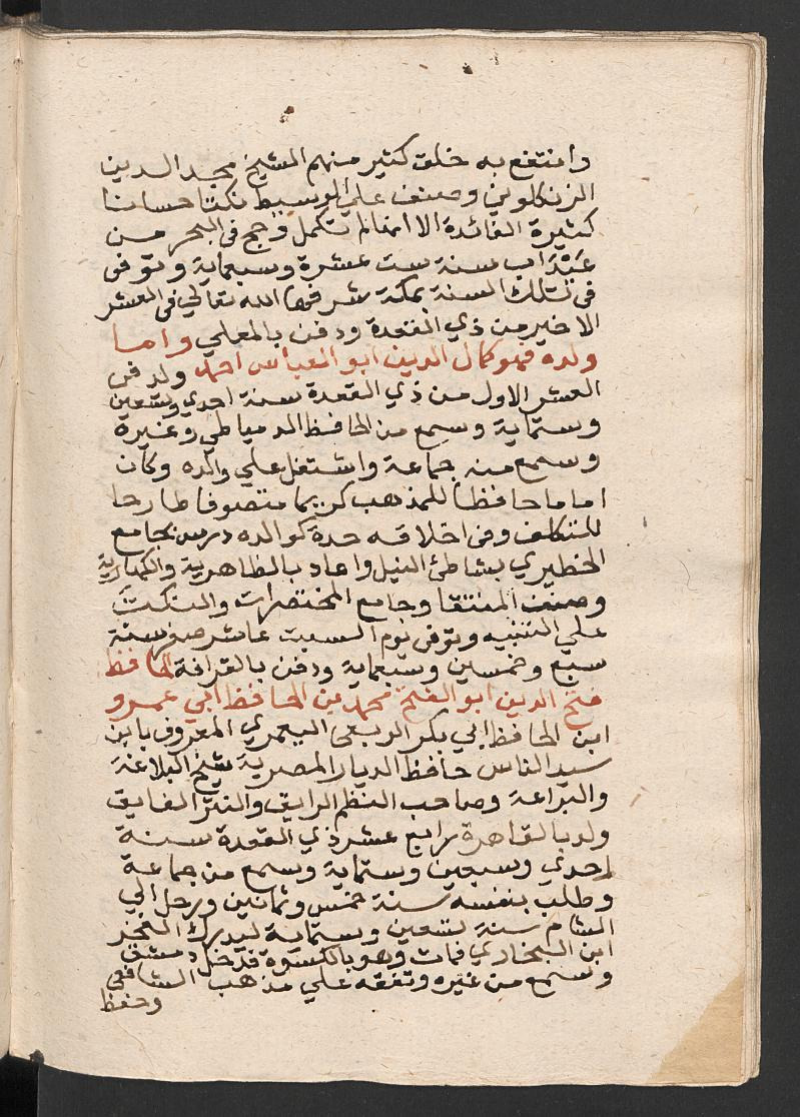 وانتفع به خلق كثير منهم الشيخ مجد الدين
الزنكلوني وصنف علي الوسيط نكتا حسانا
كثيرة الفائدة الا انها لم تكمل وحج في البحر من
عَيْذَاب سنة ست عشرة وسبعماية وتوفي
في تلك السنة بمكة شرفها الله تعالي في العشر
الاخير من ذي القعدة ودفن بالمعلي واما
ولده فهو كمال الدين ابو العباس احمد ولد في
العشر الاول من ذي القعدة سنة احدي وتسعين
وستماية وسمع من الحافظ الدمياطي وغيره
وسمع منه جماعة واشتغل علي والده وكان
اماما حافظا للمذهب كريما متصوفا طارحا
للتكلف وفي اخلاقه حدة كوالده درس بجامع
الخطيري بشاطئ النيل واعاد بالظاهرية والكهارية
وصنف المنتقا وجامع المختصرات والنكت
علي التنبيه وتوفي يوم السبت عاشر صفر سنة
سبع وخمسين وسبعماية ودفن بالقرافة الحافظ
فتح الدين ابو الفتح محمد بن الحافظ ابي عمرو
ابن الحافظ ابي بكر الربعي اليعمري المعروف بابن
سيد الناس حافظ الديار المصرية شيخ البلاغة
والبراعة وصاحب النظم الرايق والنثر الفايق
ولد بالقاهرة رابع عشر ذي القعدة سنة
احدي وسبعين وستماية وسمع من جماعة
وطلب بنفسه سنة خمس وثمانين ورحل الي
الشام سنة تسعين وستماية ليدرك الفخر
ابن البخاري فمات وهو بالكسوة فدخل دمشق
وسمع من غيره وتفقه علي مذهب الشافعي
وحفظ